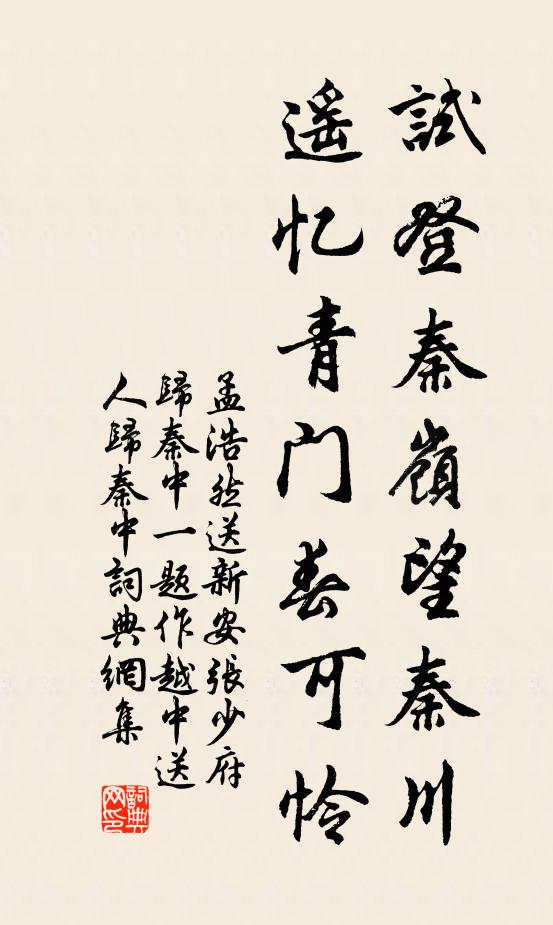 試登秦嶺望秦川
遥忆青门春可怜
孟浩然送新安張少府
歸秦中一题作越中送
人歸秦中詞典網集
詞典网印